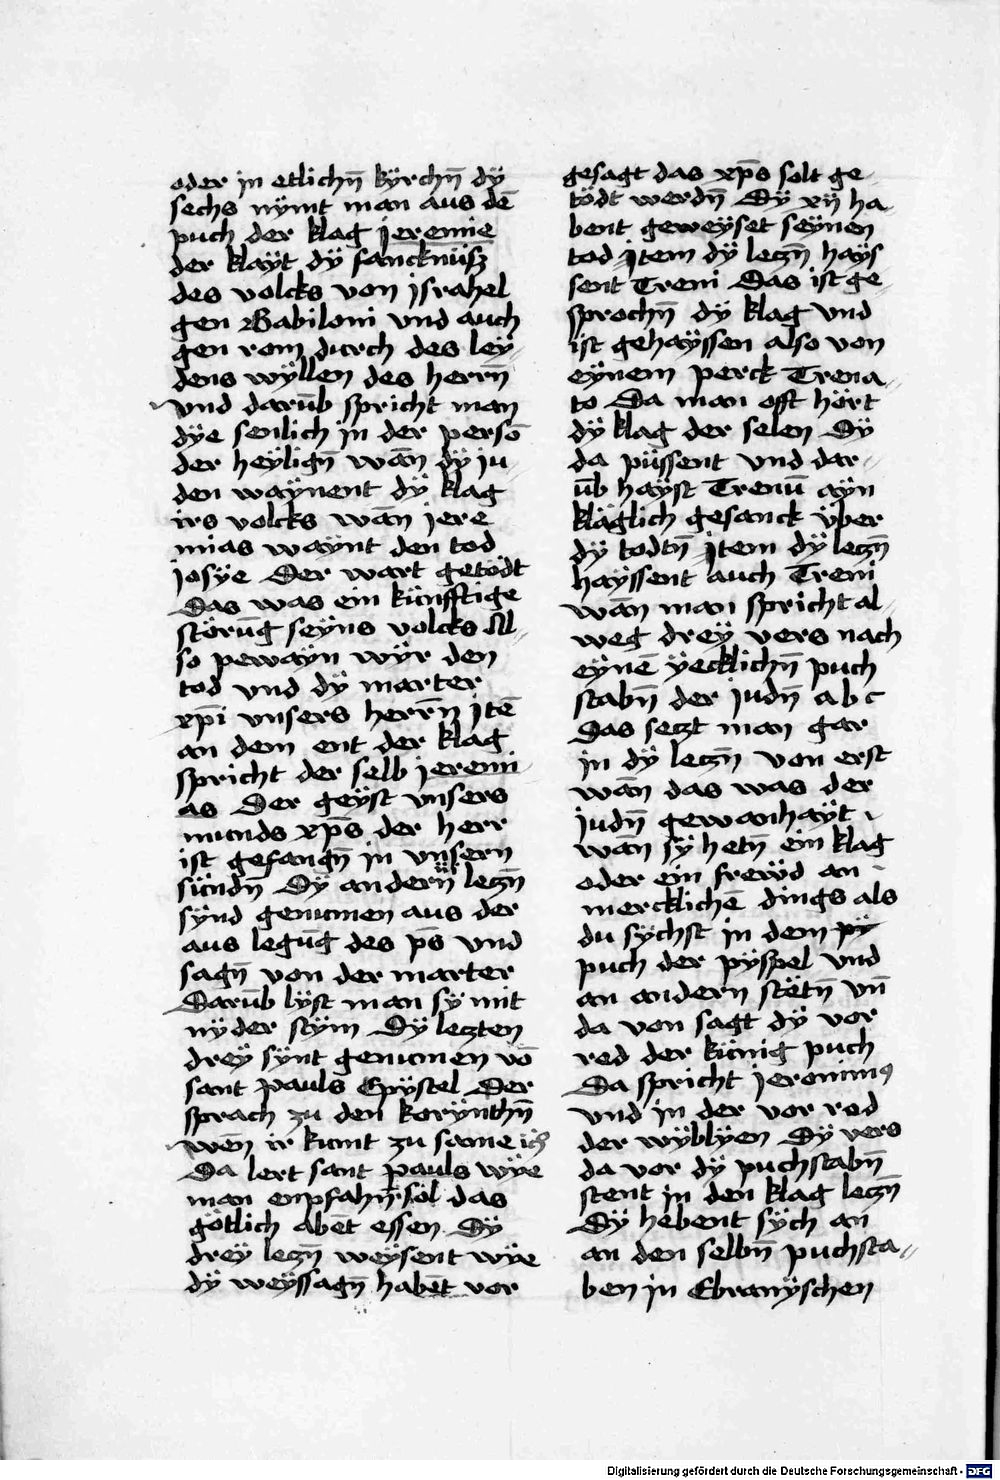 oder in etlichn̄ kÿrchn̄ dÿ
sechs nÿmt man aus dē
puch der klag jeremie
der klaÿt dÿ fancknüsz
des volcks von jsrahel
gen Babiloni vnd auch
gen rom durch des leÿ-
dens wÿllen des herrn̄
vnd darūb spricht man
dÿe senlich in der persō
der heÿlign̄ wān dÿ ju
den waÿnent dÿ klag
irs volcks wān jere
mias waÿnt den tod
josÿe Der wart getödt
Das was ein künfftige
störūg seÿns volcks Al-
so pewaÿn wÿr den
tod vnd dÿ marter
xp̄i vnsers herrn̄ jtē
an dem ent der klag
spricht der selb jeremi-
as Der geÿst vnsers
munds xp̄s der herr
ist gefangn̄ in vnsern
sündn̄ Dÿ andern̄ leczn̄
sÿnd genumen aus der
aus legūg des ps̄ vnd
sagn̄ von der marter
Darūb lÿst man sÿ mit
nÿder stÿm Dÿ leczten
dreÿ sÿnt genumen vō
sant pauls Epÿstel Der
sprach zu den korÿnthn̄
wen̄ ir kumt zu same ich
Da lert sant pauls wÿe
man enpfahn̄ söl das
götlich abēt essen Dÿ
dreÿ leczn̄ weÿsent wÿe
dÿ weÿssagn̄ habēt vor
gesagt das xp̄s solt ge-
tödt werdn̄ Dÿ xij ha-
bent geweÿset seÿnen
tod jtem dÿ leczn̄ haÿs
sent Treni Das ist ge-
sprochn̄ dÿ klag vnd
ist gehaÿssen also von
eÿnem perck Trena-
to Da man offt hört
dÿ klag der selen Dÿ
da püssent vnd dar-
ūb haÿst Trenū aÿn
kläglich gesanck über
dÿ todtn̄ jtem dÿ leczn̄
haÿssent auch Treni
wān man spricht al-
weg dreÿ vers nach
eÿnē ÿecklichn̄ puch
stabn̄ der judn̄ a b c
Das seczt man gar
in dÿ leczn̄ von erst
wān das was der
judn̄ gewanhaÿt
wan sÿ hetn̄ ein klag
oder ein freẅd an
mercklichē dings als
du sÿchst in dem pÿ
puch der pÿspel vnd
an andern stëtn̄ vn̄
da von sagt dÿ vor
red der künig puch
Da spricht jeronimus
vnd in der vor red
der wÿblÿen Dÿ vers
da vor dÿ puchstabn̄
stent in den klag leczn̄
Dÿ hebent sÿch an
an den selbn̄ puchsta-
ben in Ebranÿschen
Digitalisierung gefördert durch die Deutsche Forschungsgemeinschaft - DFG